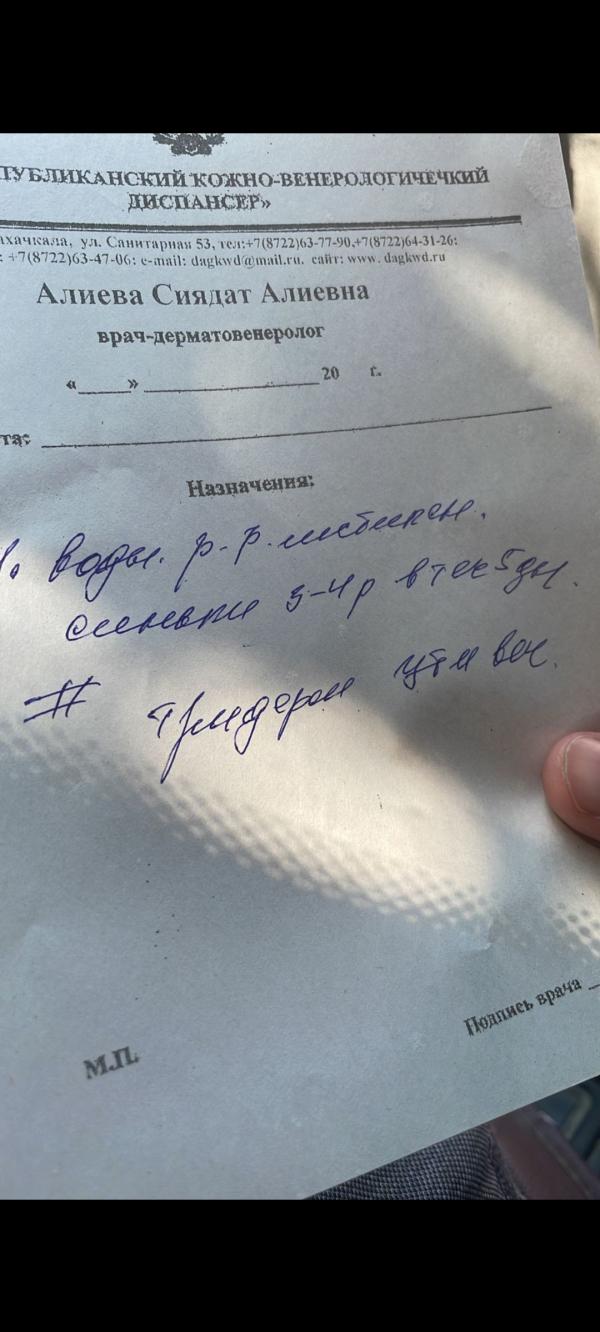 ПУБЛИКАНСКИЙ КОЖНО-ВЕНЕРОЛОГИЧЕЧКИЙ
ДИСПАНСЕР»
ахачкала, ул. Санитарная 53, тел:+7(8722)63-77-90,+7(8722)64-31-26;
: +7(8722)63-47-06; e-mail: dagkwd@mail.ru. сайт: www. dagkwd.ru
Алиева Сиядат Алиевна
врач-дерматовенеролог
«____» ____________ 20 г.
та:
Назначения:
1. водн. р-р.
синьки 3-4 р в теч 5 дн.
# тридерм утм веч.
Подпись врача
М.П.